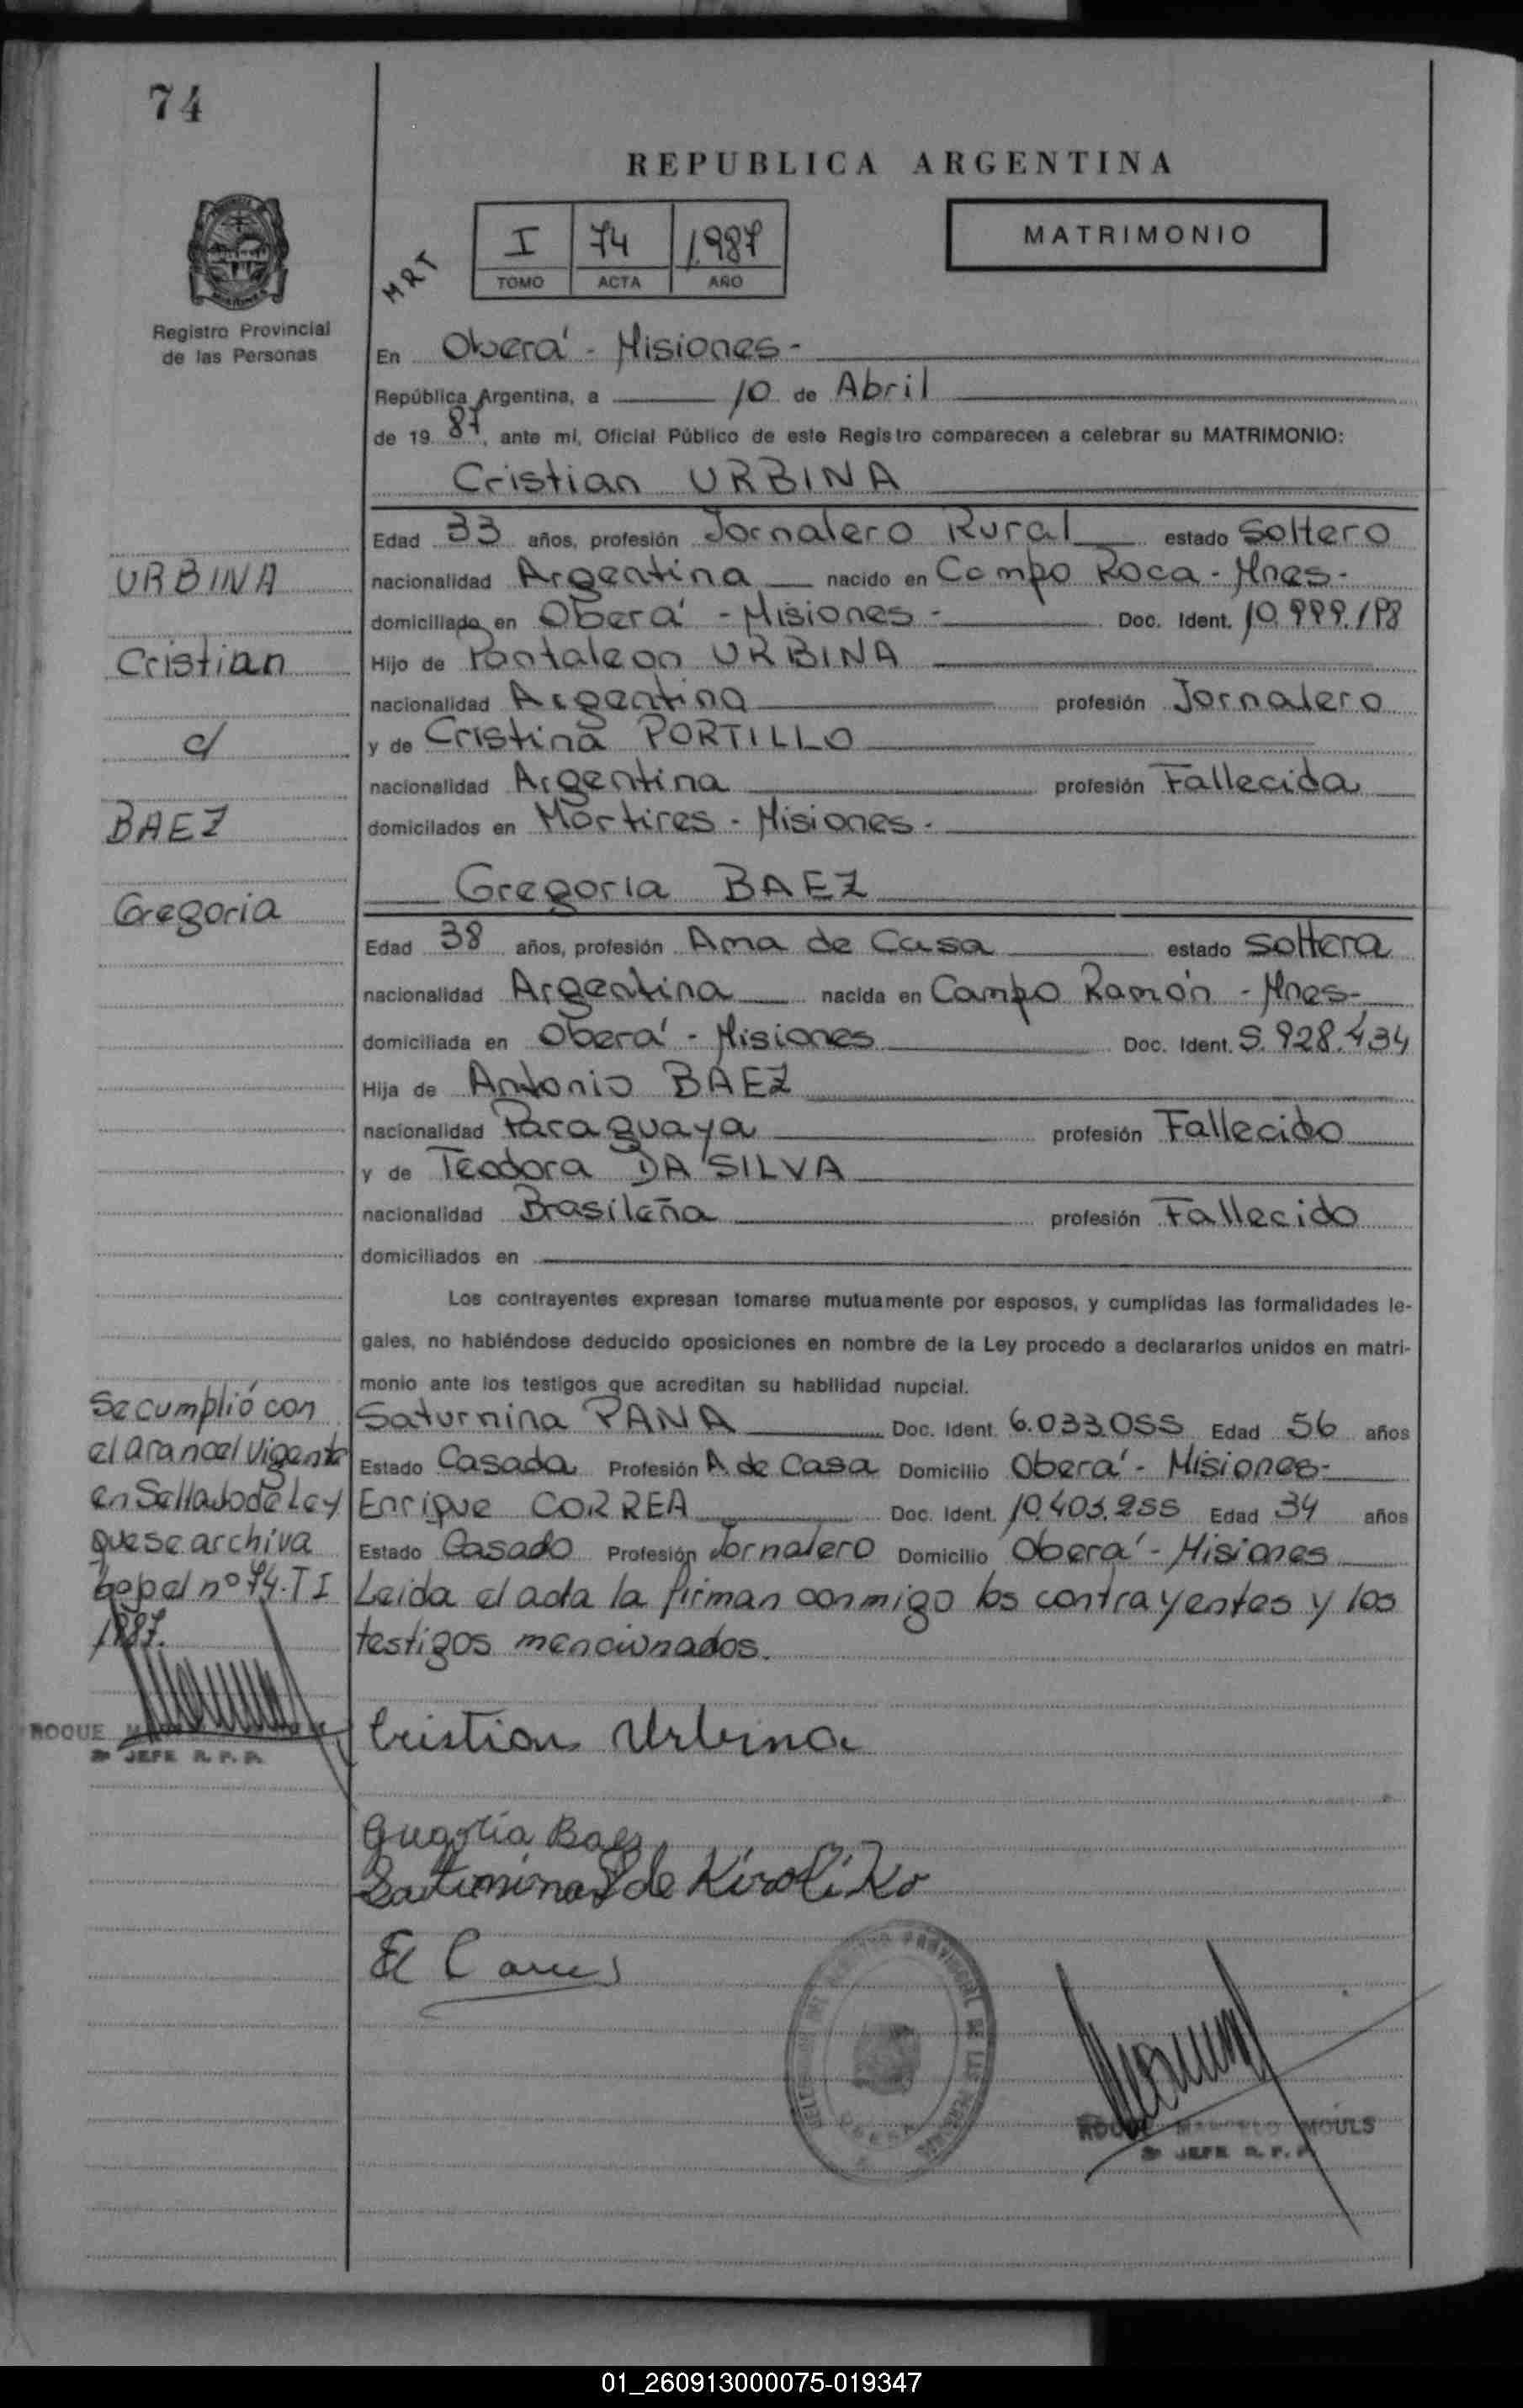 74
REPUBLICA ARGENTINA
MATRIMONIO
I 74 1.987
TOMO ACTA AÑO
MRT
Registro Provincial
de las Personas
En Oberá - Misiones -
República Argentina, a 10 de Abril
de 19 87, ante mí, Oficial Público de este Registro comparecen a celebrar su MATRIMONIO:
Cristian URBINA
Edad 33 años, profesión Jornalero Rural estado Soltero
nacionalidad Argentina nacido en Campo Roca - Mnes-
domiciliado en Oberá - Misiones - Doc. Ident.
Hijo de Pantaleon URBINA
nacionalidad Argentina profesión Jornalero
y de Cristina PORTILLO
nacionalidad Argentina profesión Fallecida
domicilados en Mártires - Misiones -
Gregoria BAEZ
Edad 38 años, profesión Ama de Casa estado Soltera
nacionalidad Argentina nacida en Campo Ramón - Mnes-
domiciliada en Oberá - Misiones Doc. Ident. 5.928.434
Hija de Antonio BAEZ
nacionalidad Paraguaya profesión Fallecido
y de Teodora DA SILVA
nacionalidad Brasileña profesión Fallecido
domiciliados en
Los contrayentes expresan tomarse mutuamente por esposos, y cumplidas las formalidades le-
gales, no habiéndose deducido oposiciones en nombre de la Ley procedo a declararlos unidos en matri-
monio ante los testigos que acreditan su habilidad nupcial.
Saturnina PANA Doc. Ident. 6.033.055 Edad 56 años
Estado Casada Profesión A. de Casa Domicilio Oberá - Misiones-
Enrique CORREA Doc. Ident. 10.403.255 Edad 34 años
Estado Casado Profesión Jornalero Domicilio Oberá - Misiones
Leida el acta la firman conmigo los contrayentes y los
testigos mencionados.
URBINA
Cristian
c/
BAEZ
Gregoria
Se cumplió con
el arancel vigente
en Sellado de Ley
que se archiva
bajo el nº 74. T I
1987.
ROQUE
2º JEFE R. P. P.
Cristian Urbina
Gregoria Baez
de
ROQUE MARCELO MOULS
2º JEFE R. P. P.
01_260913000075-019347